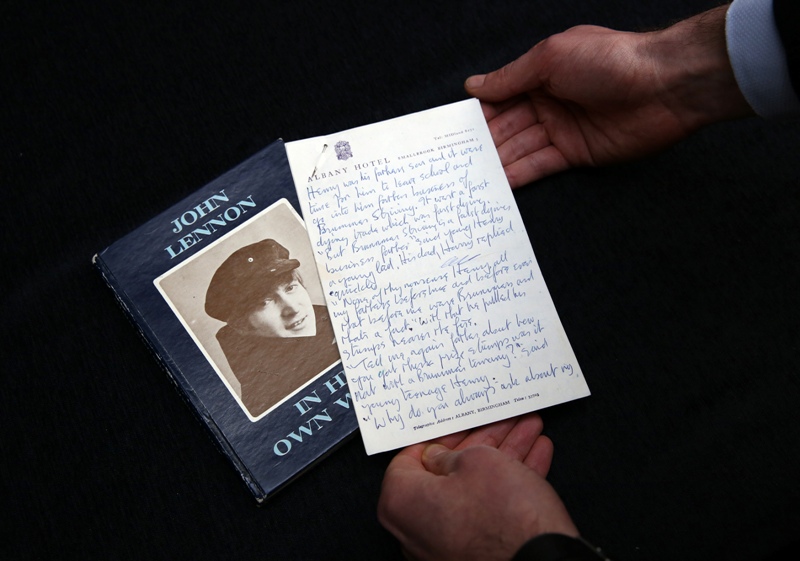 JOHN
LENNON
IN HI
OWN W
ALBANY HOTEL SMALLBROOK BIRMINGHAM
Henry was his fathers son and it were
time for him to leave school and
go into him father buseness of
Brummer Striving. It wart a farst
dying trade which was fast dying.
"But Brummer Striving is a farst dying,
business father" said young Henry
a young lad. His dad, Harry replied
quickled
"None of thy nonsense Henry all
my fathers before have and before even
that before me were Brummers and
thats a fact" With that he pulled his
stumps nearer the fire.
"Tell me again father about how
you got those friese stumps was it
that with a Brummer Striving?" said
young teenage Henry.
"Why do you always ask about my,
Telegraphic Address: ALBANY, BIRMINGHAM